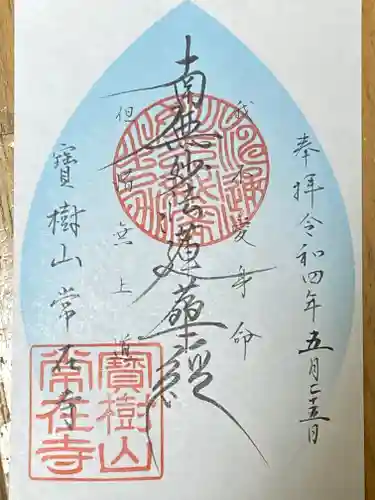 奉拝 令和四年 五月二十五日
我不愛身命
南無妙法蓮華経
但惜無上道
寶樹山 常在寺
寶樹山
常在寺